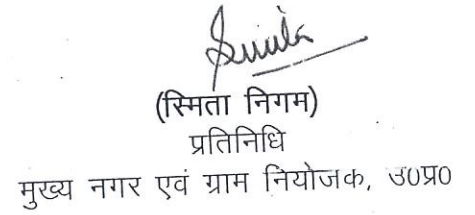 Smita
(स्मिता निगम)
प्रतिनिधि
मुख्य नगर एवं ग्राम नियोजक, उ०प्र०